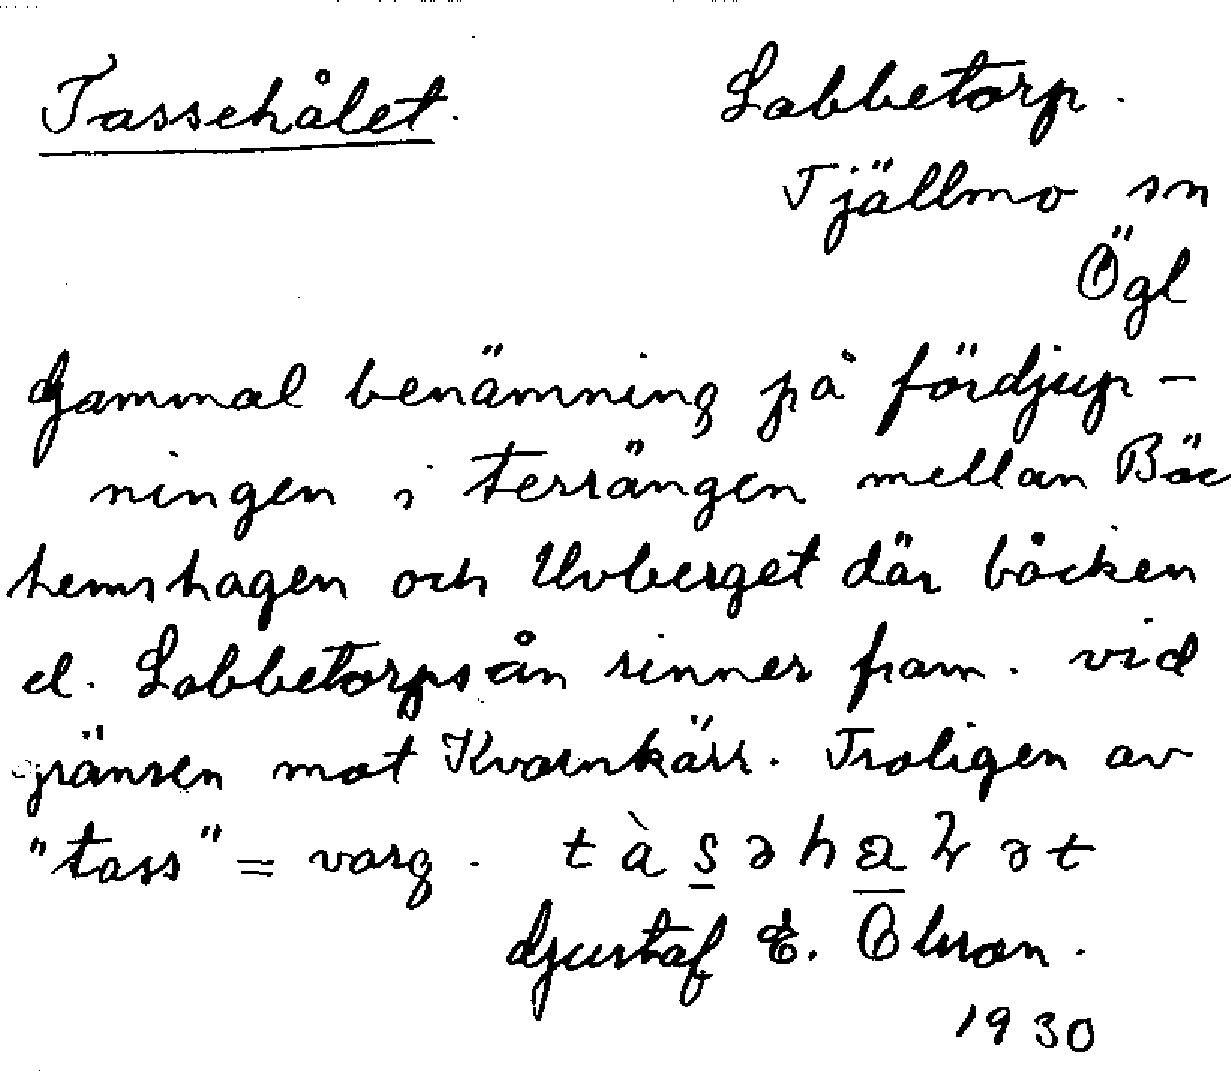 Tassehålet. Labbetorp.
Tjällmo sn
Ögl
Gammal benämning på fördjup-
ningen i terrängen mellan Bäc
hemshagen och Uvberget där båcken
el. Labbetorpsån rinner fram. vid
gränsen mot Kvarnkärr. Troligen av
"tass" = varg.
Gustaf E. Olsson.
1930